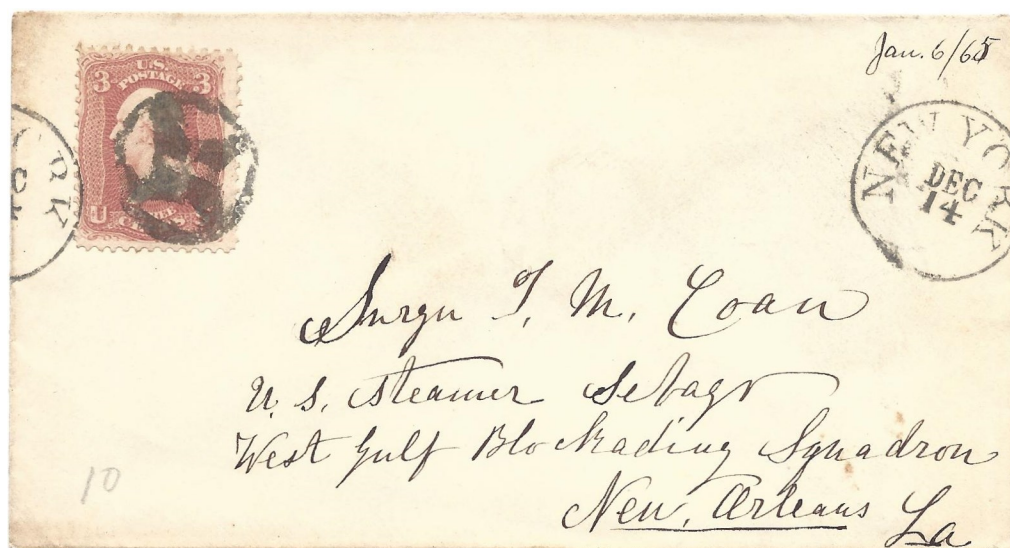 Jan. 6/65
3 U.S. POSTAGE 3
U
NEW YORK
DEC
14
ORK
C
Surgn T. M. Coan
U. S. Steamer Sebago
West Gulf Blockading Squadron
New Orleans La
10